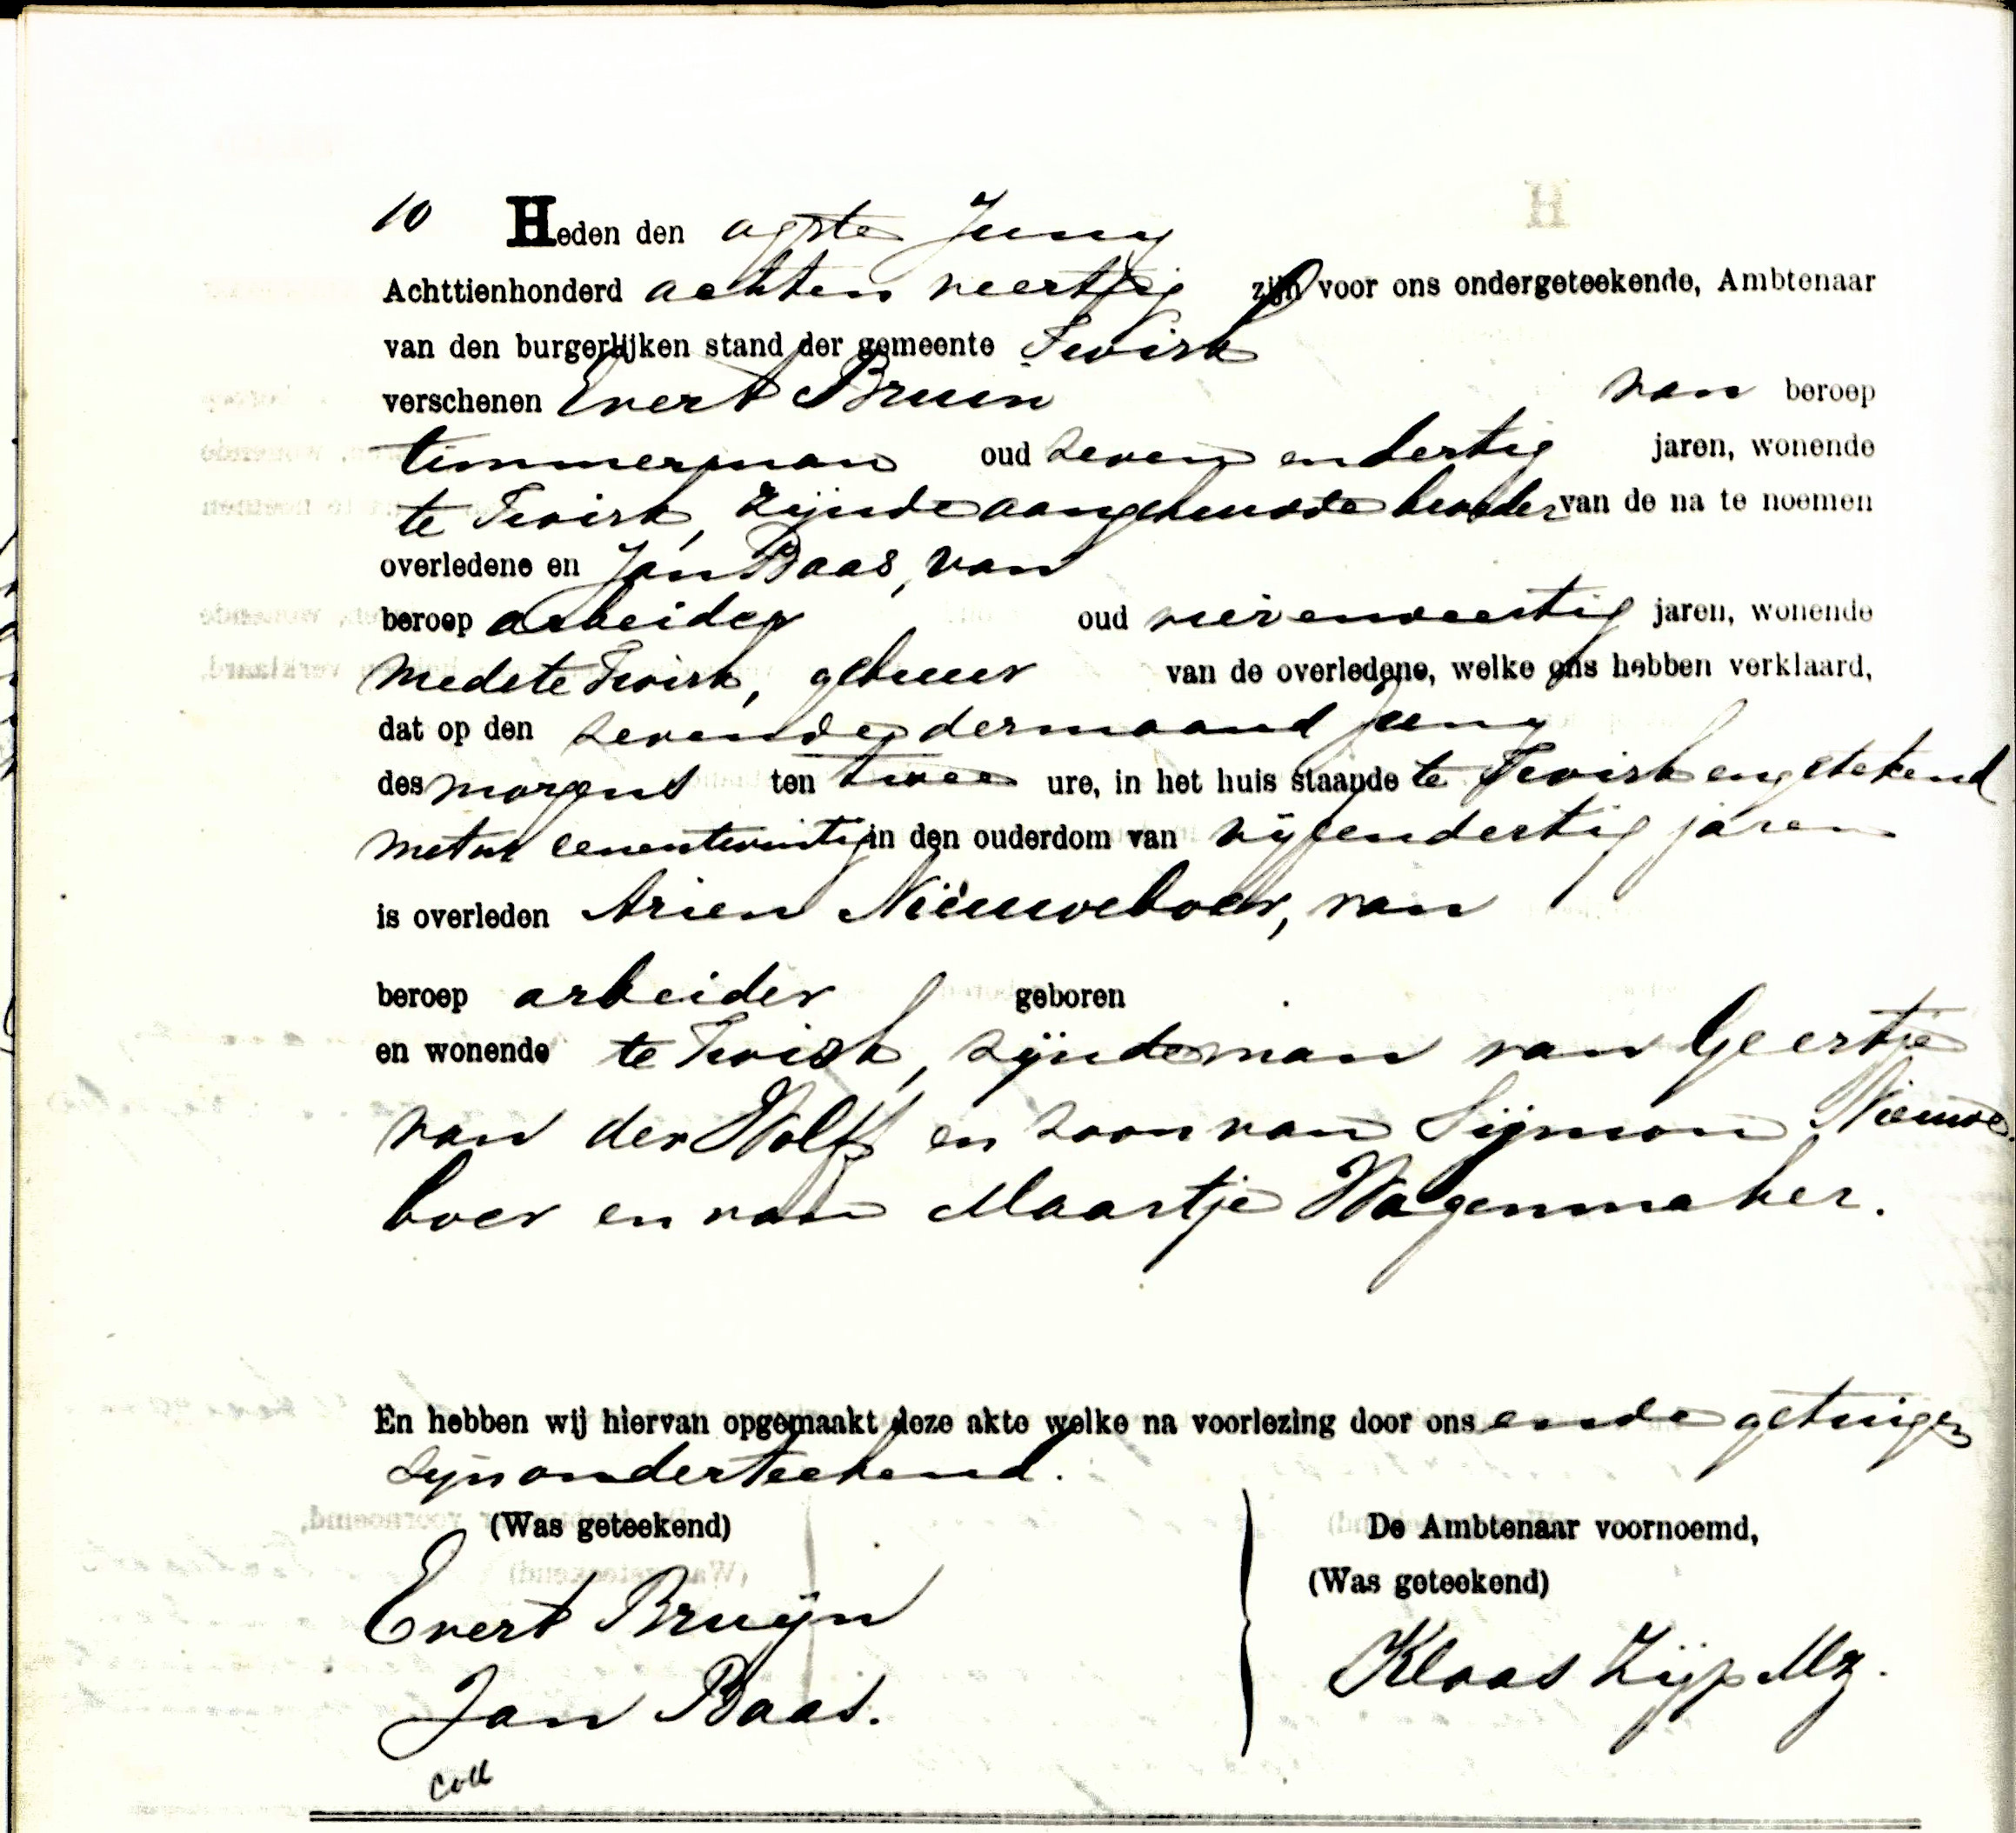 10 Heden den agste Juny
Achttienhonderd achten veertig zijn voor ons ondergeteekende, Ambtenaar
van den burgerlijken stand der gemeente Twisk
verschenen Evert Bruin van beroep
timmerman oud zeven en dertig jaren, wonende
te Twisk, zijnde aangehuwde broeder van de na te noemen
overledene en Jan Baas, van
beroep arbeider oud vierenveertig jaren, wonende
mede te Twisk, gebuur van de overledene, welke ons hebben verklaard,
dat op den zevende der maand Juny
des morgens ten twee ure, in het huis staande te Twisk en getekend
met no eenentwintig in den ouderdom van vijfendertig jaren
is overleden Arien Nieuweboer, van
beroep arbeider geboren
en wonende te Twisk, zijnde man van Geertje
van der Wolff en zoon van Sijmon Nieuwe
boer en van Maartje Wagenmaker.
En hebben wij hiervan opgemaakt deze akte welke na voorlezing door ons en de getuigen
zijn onderteekend.
(Was geteekend)
De Ambtenaar voornoemd,
(Was geteekend)
Evert Bruijn
Klaas Zijp Mz.
Jan Baas.
Coll